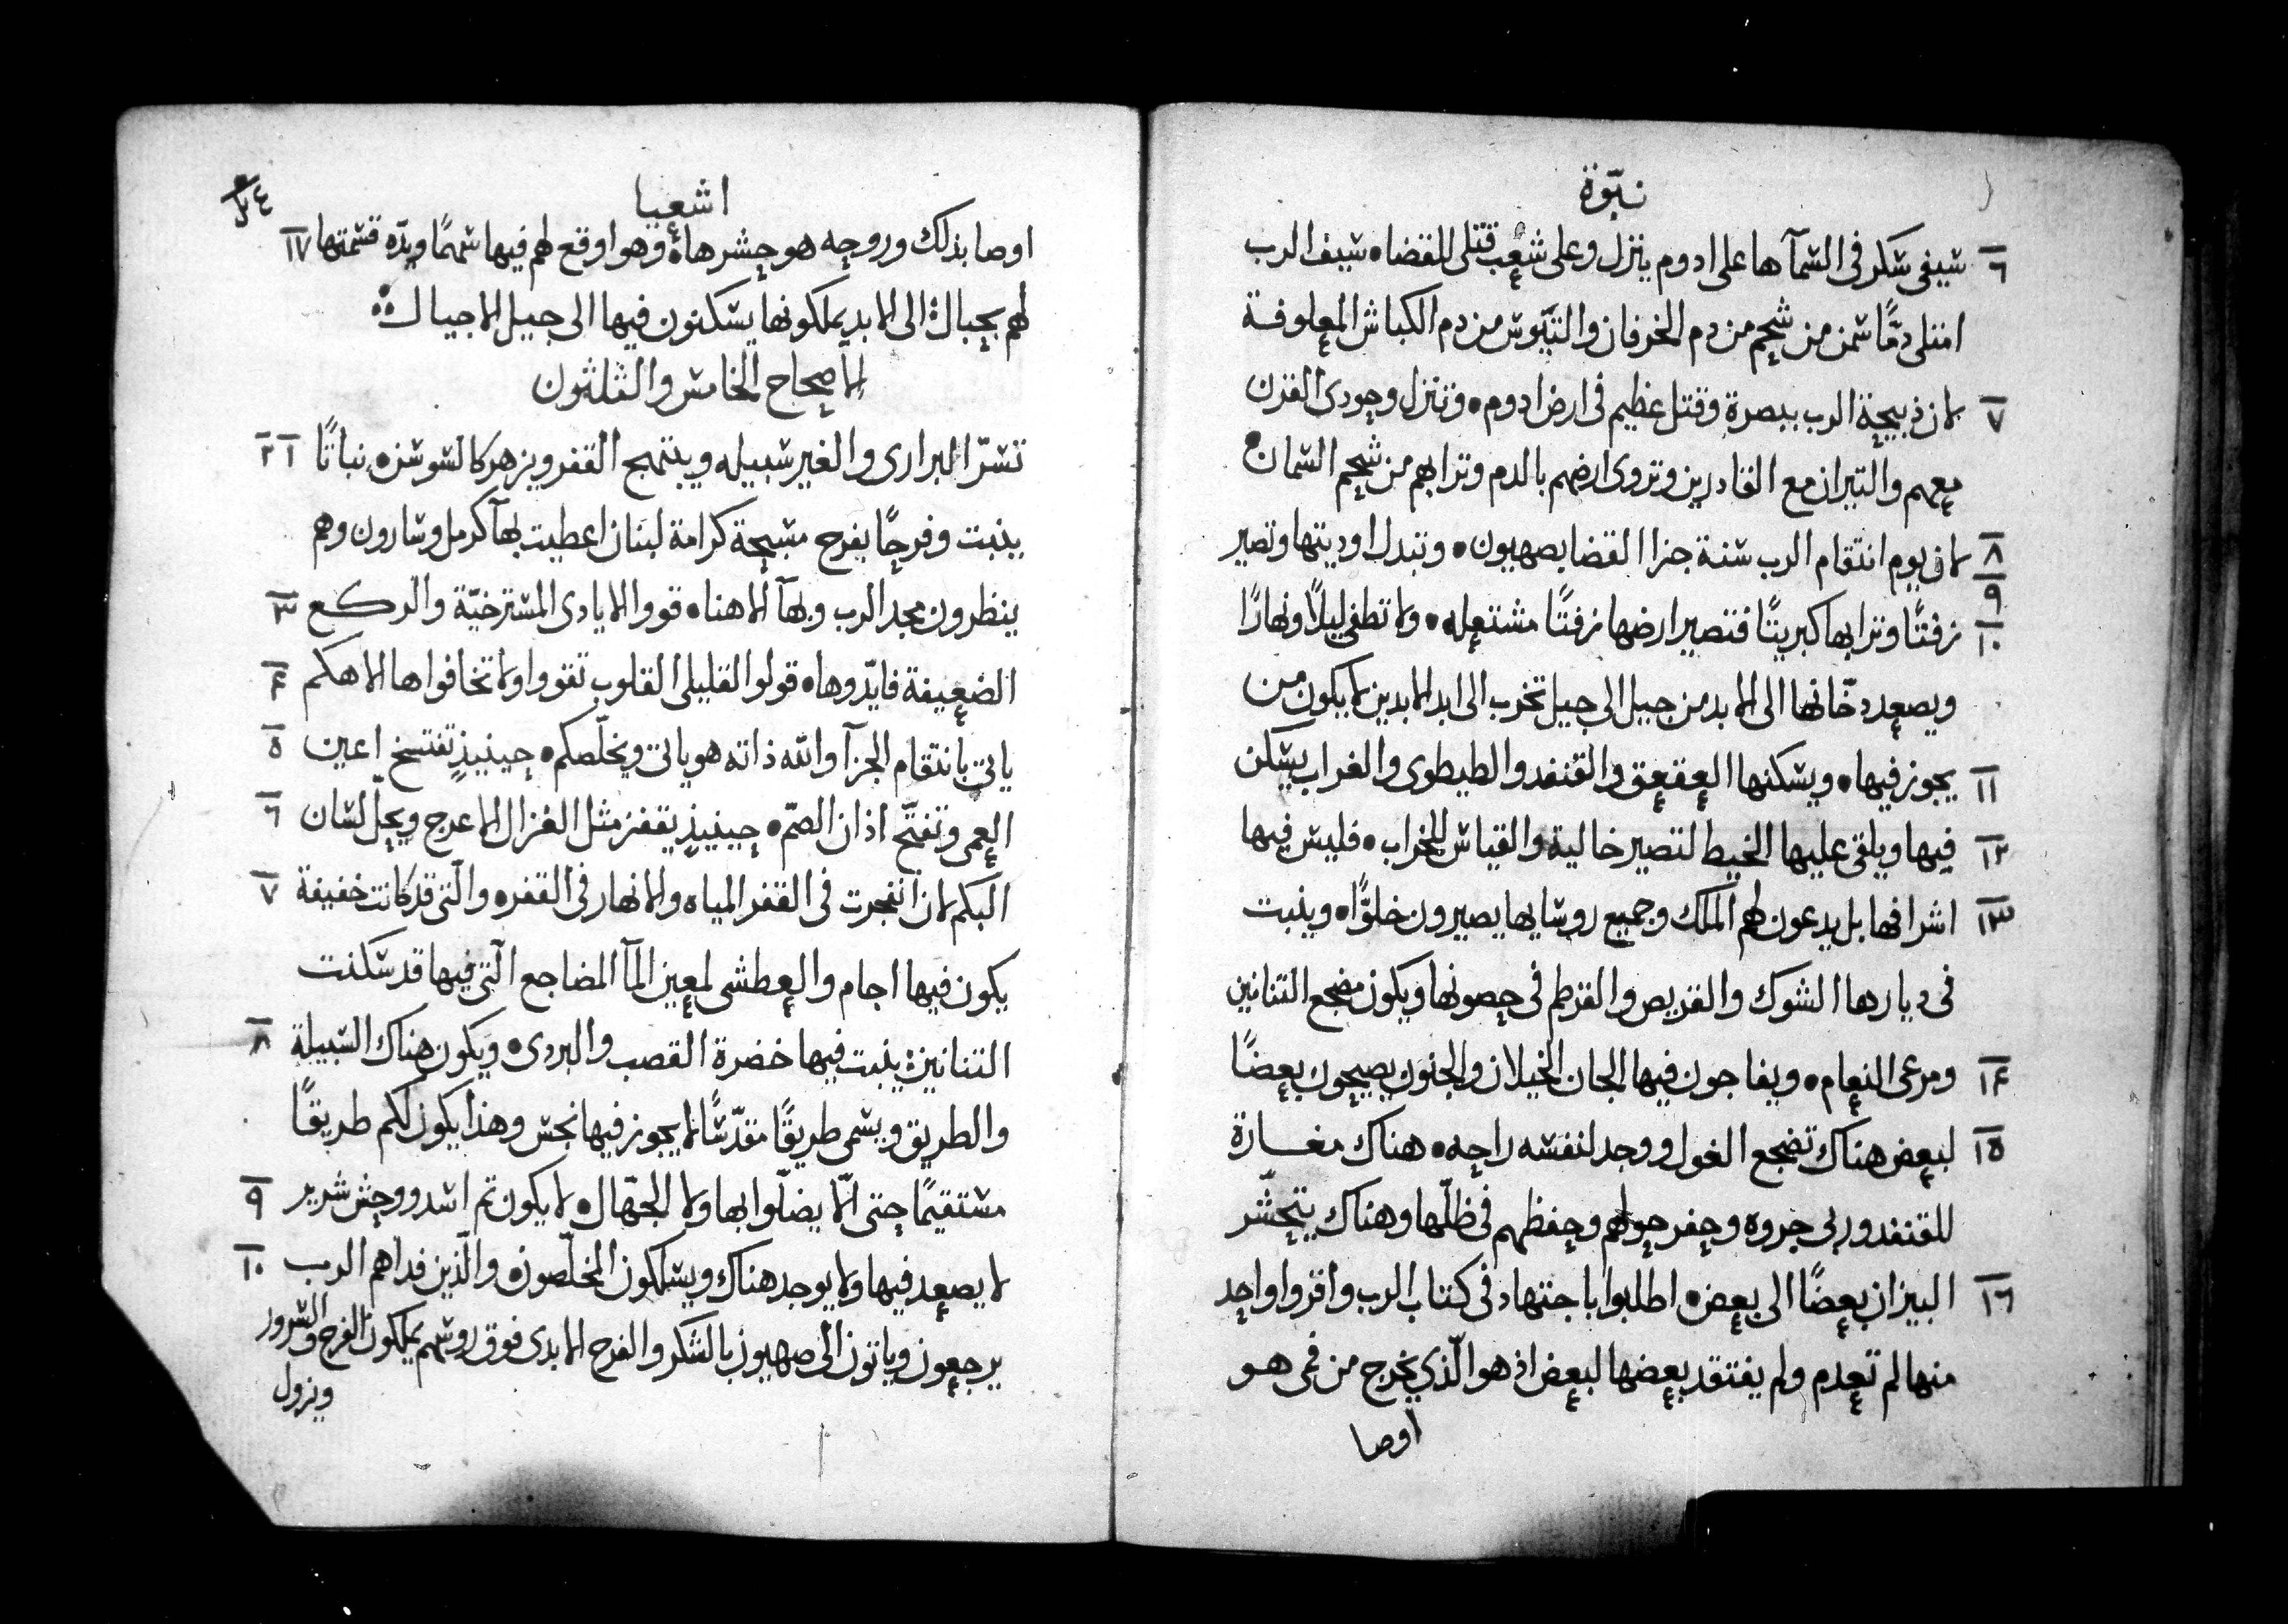 نبّوة
٦ سيفي سكر في السمآ ها على ادوم ينزل وعلى شعب قتلى للقضاه سيف الرب
امتلى دمًا سمن من شحم من دم الخرفان والتيّوس من دم الكباش المعلوفة
٧ لان ذبيحة الرب ببصرة وقتل عظيم في ارض ادوم ه وتنزل وحودى القرن
معهم والتيران مع القادرين وتروى ارضهم بالدم وترابهم من شحم السمان ه
٨ لان يوم انتقام الرب سنة جزا القضا بصهيون ه وتبدل اوديتها وتصير
٩ ١٠ زفتًا وترابها كبريتًا فتصير ارضها زفتًا مشتعله ه ولا تطفى ليلًا ونهارًا
ويصعد دخّانها الى الابد من جيل الى جيل تخرب الى ابد الابدين لا يكون من
١١ يجوز فيها ه ويسكنها العقعق والقنفد والطيطوى والغراب يسكن
١٢ فيها ويلقى عليها الخيط لتصير خالية والقياس للخراب ه فليس فيها
١٣ اشرافها بل يدعون لهم الملك وجميع روسايها يصيرون خلوًّا ه وينبت
في ديارها الشوك والقريص والقرطم في حصونها ويكون مضجع التنانين
١٤ ومرعى النعام ه ويفاجون فيها الجان الخيلان والجنون يصيحون بعضًا
١٥ لبعض هناك تضجع الغول ووجد لنفسه راحه ه هناك مغارة
للقنفد وربى جروه وحفر حولهم وحفظهم في ظلّها وهناك يتحشّر
١٦ البيزان بعضًا الى بعض ه اطلبوا باجتهاد في كتاب الرب واقروا واحد
منها لم تعدم ولم يفتقد بعضها لبعض اذ هو الّذي يخرج من فمى هو
اوصا
اشعيا
١٧ اوصا بذلك وروحه هو حشرها ه وهو اوقع لهم فيها سهمًا ويدّه قسمتها
لهم بحبال الى الابد يملكونها يسكنون فيها الى جيل الاجيال
الاصحاح الخامس والثلثون
١ ٢ تسرّ البرارى والغير سبيله ويبتهج القفر ويزهر كالسوسن ه نباتًا
ينبت وفرحًا يفرح مسبحة كرامة لبنان اعطيت بهآ كرمل وسارون وهم
٣ ينظرون مجد الرب وبهآ الاهنا ه قووا الايادى المسترخيّة والركع
٤ الضعيفة فايّدوها ه قولوا لقليلى القلوب تقووا ولا تخافوا ها الاهكم
٥ ياتي بانتقام الجزآ والله ذاته هو ياتى ويخلّصكم ه حينيذٍ تفتسخ اعين
٦ العمى وتفتّح اذان الصمّ ه حينيذٍ يقفز مثل الغزال الاعرج ويحلّ لسان
٧ البكم لان انفجرت في القفر المياه والانهار في القفر ه والّتى قد كانت خفيفة
يكون فيها اجام والعطشى لمعين المآ المضاجع الّتى فيها قد سكنت
٨ التنانين ينبت فيها خضرة القصب والبردى ه ويكون هناك السبيلة
والطريق ويسمى طريقًا مقدّسًا لا يجوز فيها نجس وهذا يكون لكم طريقًا
٩ مستقيمًا حتى الّا يضلّوا بها ولا الجهّال ه لا يكون تم اسد ووحش شرير
١٠ لا يصعد فيها ولا يوجد هناك ويسلكون المخلّصون ه والّذين فداهم الرب
يرجعون وياتون الى صهيون بالشكر والفرح الابدى فوق روسهم يملكون الفرح والسرور
ويزول